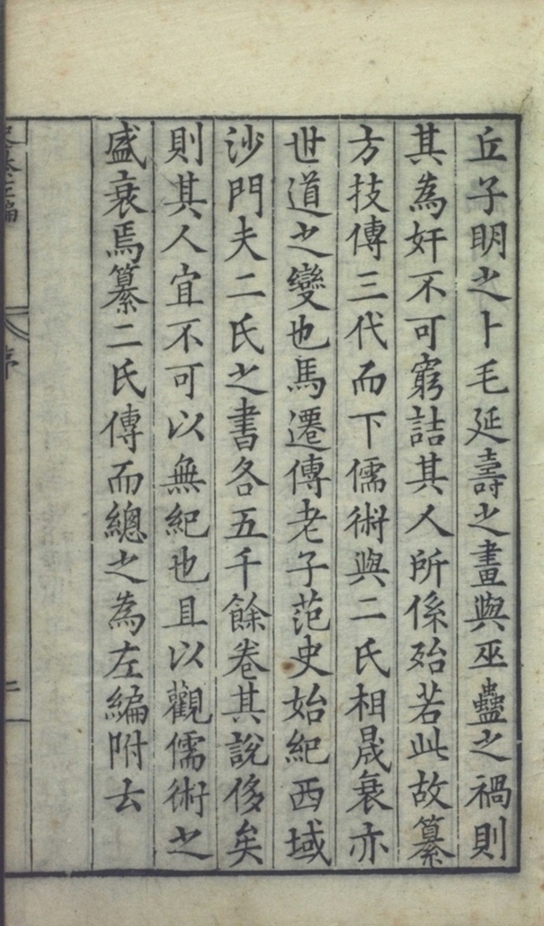 丘子明之卜毛延壽之畫與巫蠱之禍則
其為奸不可窮詰其人所係殆若此故纂
方技傳三代而下儒術與二氏相晟衰亦
世道之變也馬遷傳老子范史始紀西域
沙門夫二氏之書各五千餘卷其說侈矣
則其人宜不可以無紀也且以觀儒術之
盛衰焉纂二氏傳而總之為左編附去
序
二